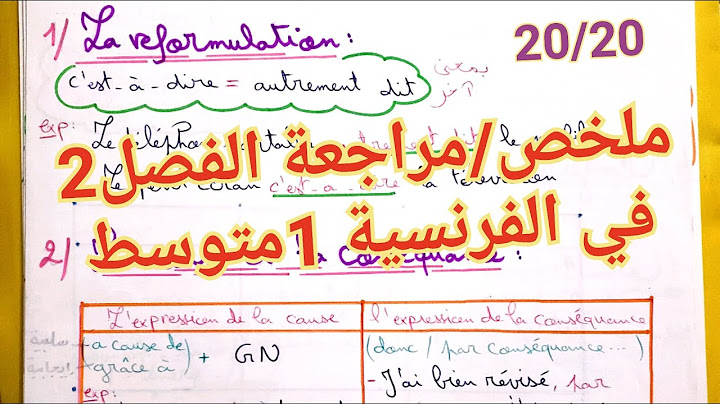 1/ La reformulation :
20/20
c'est-à-dire = autrement dit
بمعنى
آخر
exp: Le télép
dit le
ملخص/مراجعة الفصل2
Le écran c'est-a-dire la
في الفرنسية 1متوسط
2/
L'expression de la cause
l'expression de la conséquance
سلبية - a cause de
إيجابية - grâce à
+ GN
(donc / par conséquance ... )
exp:
- J'ai bien révisé, par